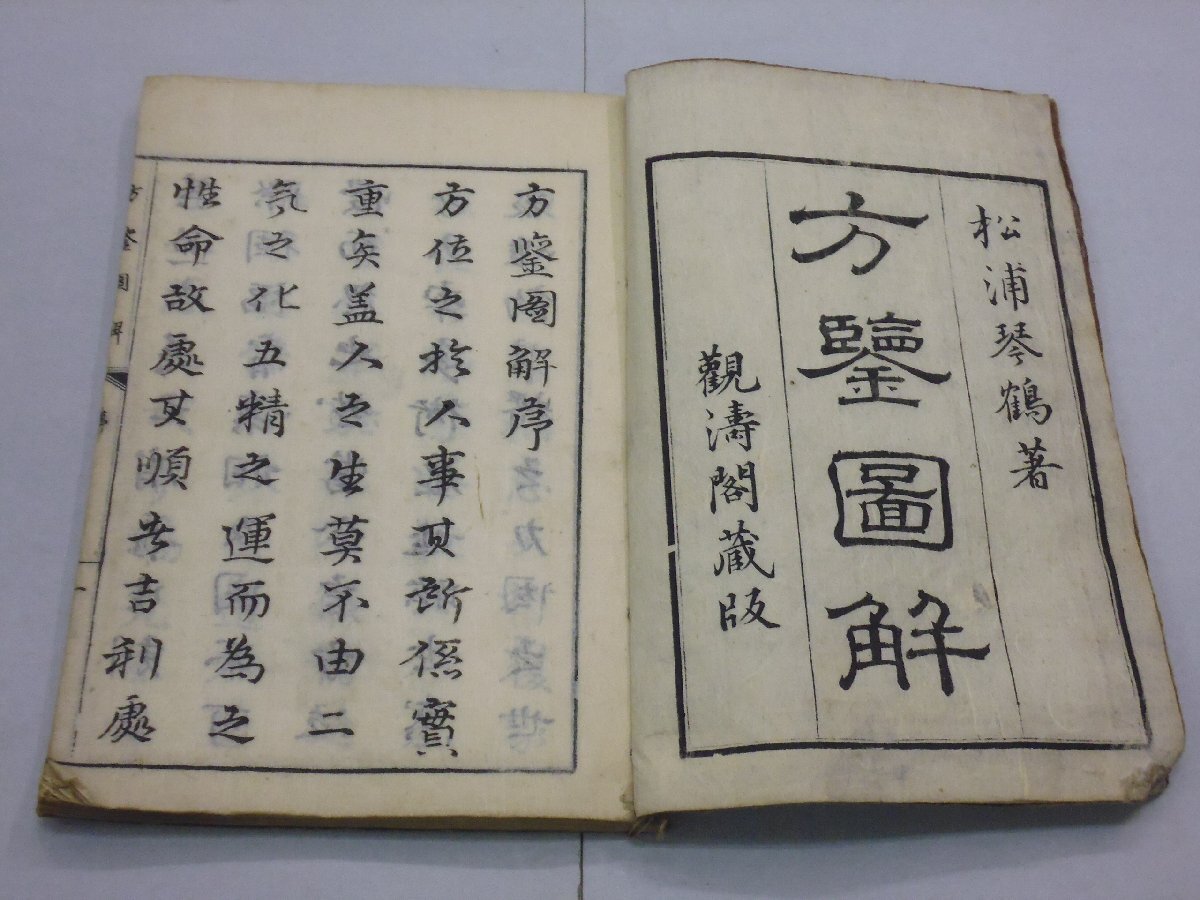 松浦琴鶴著
方鑒圖解
觀濤閣藏版
方鑒圖解序
方位之於人事其所係實
重矣蓋人之生莫不由二
氣之化五精之運而為之
性命故處其順者吉利處
方鑒圖解 序